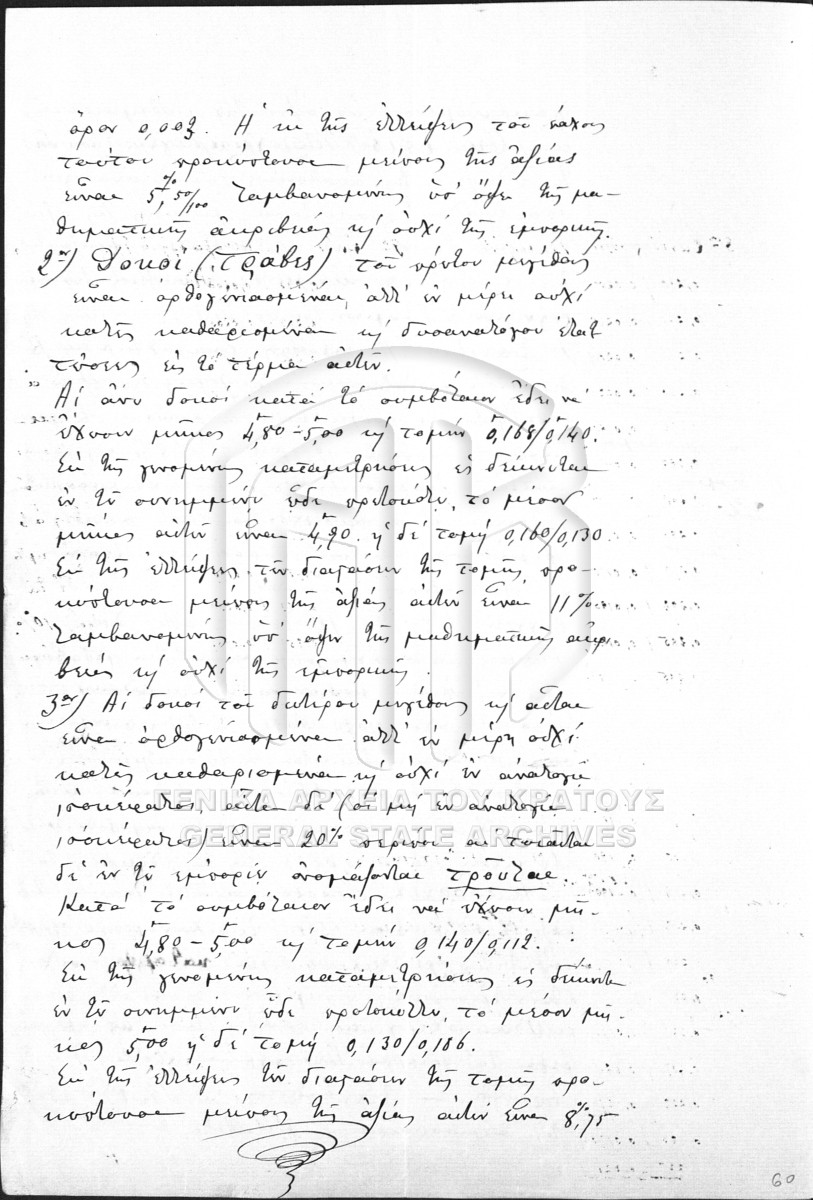 ὅρον 0,003. Ἡ ἐκ τῆς ἐλλείψεως τοῦ πάχους
τούτου προκύπτουσα μείωσις τῆς ἀξίας
εἶναι 5,50/100 % λαμβανομένης ὑπ' ὄψει τῆς μα-
θηματικῆς ἀκριβείας κ) οὐχὶ τῆς ἐμπορικῆς.
2ον) Δοκοί (Τράβες) τοῦ πρώτου μεγέθους
εἶναι ὀρθογωνιασμέναι, ἀλλ' ἐν μέρει οὐχὶ
καλῶς καθαρισμέναι κ) δυσαναλόγου ἐλατ
τώσεως εἰς τὸ τέρμα αὐτῶν.
Αἱ ἄνω δοκοὶ κατὰ τὸ συμβόλαιον ἔδει νὰ
ἔχωσιν μῆκος 4,80-5,00 κ) τομὴν 0,168/0,140.
Ἐκ τῆς γενομένης καταμετρήσεως ὡς δείκνυται
ἐν τῷ συνημμένῳ ὧδε πρωτοκόλλῳ, τὸ μέσον
μῆκος αὐτῶν εἶναι 4,90 ἡ δὲ τομὴ 0,160/0,130.
Ἐκ τῆς ἐλλείψεως τῶν διαστάσεων τῆς τομῆς, προ-
κύπτουσα μείωσις τῆς ἀξίας αὐτῶν εἶναι 11%
λαμβανομένης ὑπ' ὄψιν τῆς μαθηματικῆς ἀκρι
βείας κ) οὐχὶ τῆς ἐμπορικῆς.
3ον) Αἱ δοκοὶ τοῦ δευτέρου μεγέθους κ) αὗται
εἶναι ὀρθογωνιασμέναι ἀλλ' ἐν μέρει οὐχὶ
καλῶς καθαρισμέναι κ) οὐχὶ ἐν ἀναλογίᾳ
ἰσοκέφαλοι, αὗται δὲ (αἱ μὴ ἐν ἀναλογίᾳ
ἰσοκέφαλοι) εἶναι 20% περίπου αἱ τοιαῦται
δὲ ἐν τῷ ἐμπορίῳ ὀνομάζονται τροῦλαι.
Κατὰ τὸ συμβόλαιον ἔδει νὰ ἔχωσιν μῆ-
κος 4,80-5,00 κ) τομὴν 0,140/0,112.
Ἐκ τῆς γενομένης καταμετρήσεως ὡς δείκνυται
ἐν τῷ συνημμένῳ ὧδε πρωτοκόλλῳ, τὸ μέσον μῆ-
κος 5,00 ἡ δὲ τομὴ 0,130/0,106.
Ἐκ τῆς ἐλλείψεως τῶν διαστάσεων τῆς τομῆς προ-
κύπτουσα μείωσις τῆς ἀξίας αὐτῶν εἶναι 8,75 %
ΓΕΝΙΚΑ ΑΡΧΕΙΑ ΤΟΥ ΚΡΑΤΟΥΣ
GENERAL STATE ARCHIVES
60